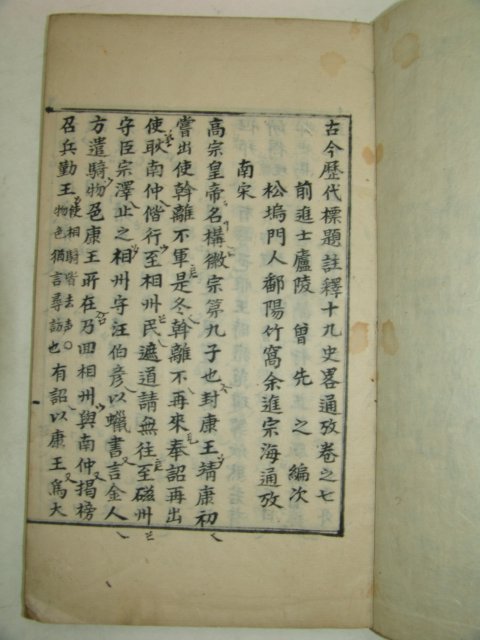 古今歷代標題註釋十九史畧通攷卷之七
前進士廬陵曾先之編次
松塢門人鄱陽竹窩余進宗海通攷
南宋
高宗皇帝名構徽宗第九子也封康王靖康初
嘗出使斡離不軍是冬斡離不再來奉詔再出
使耿南仲偕行至相州民遮道請無往至磁州
守臣宗澤止之相州守汪伯彦以蠟書言金人
方遣騎物色康王所在乃回相州與南仲揭榜
召兵勤王使相騎皆去声○物色猶言尋訪也有詔以康王為大